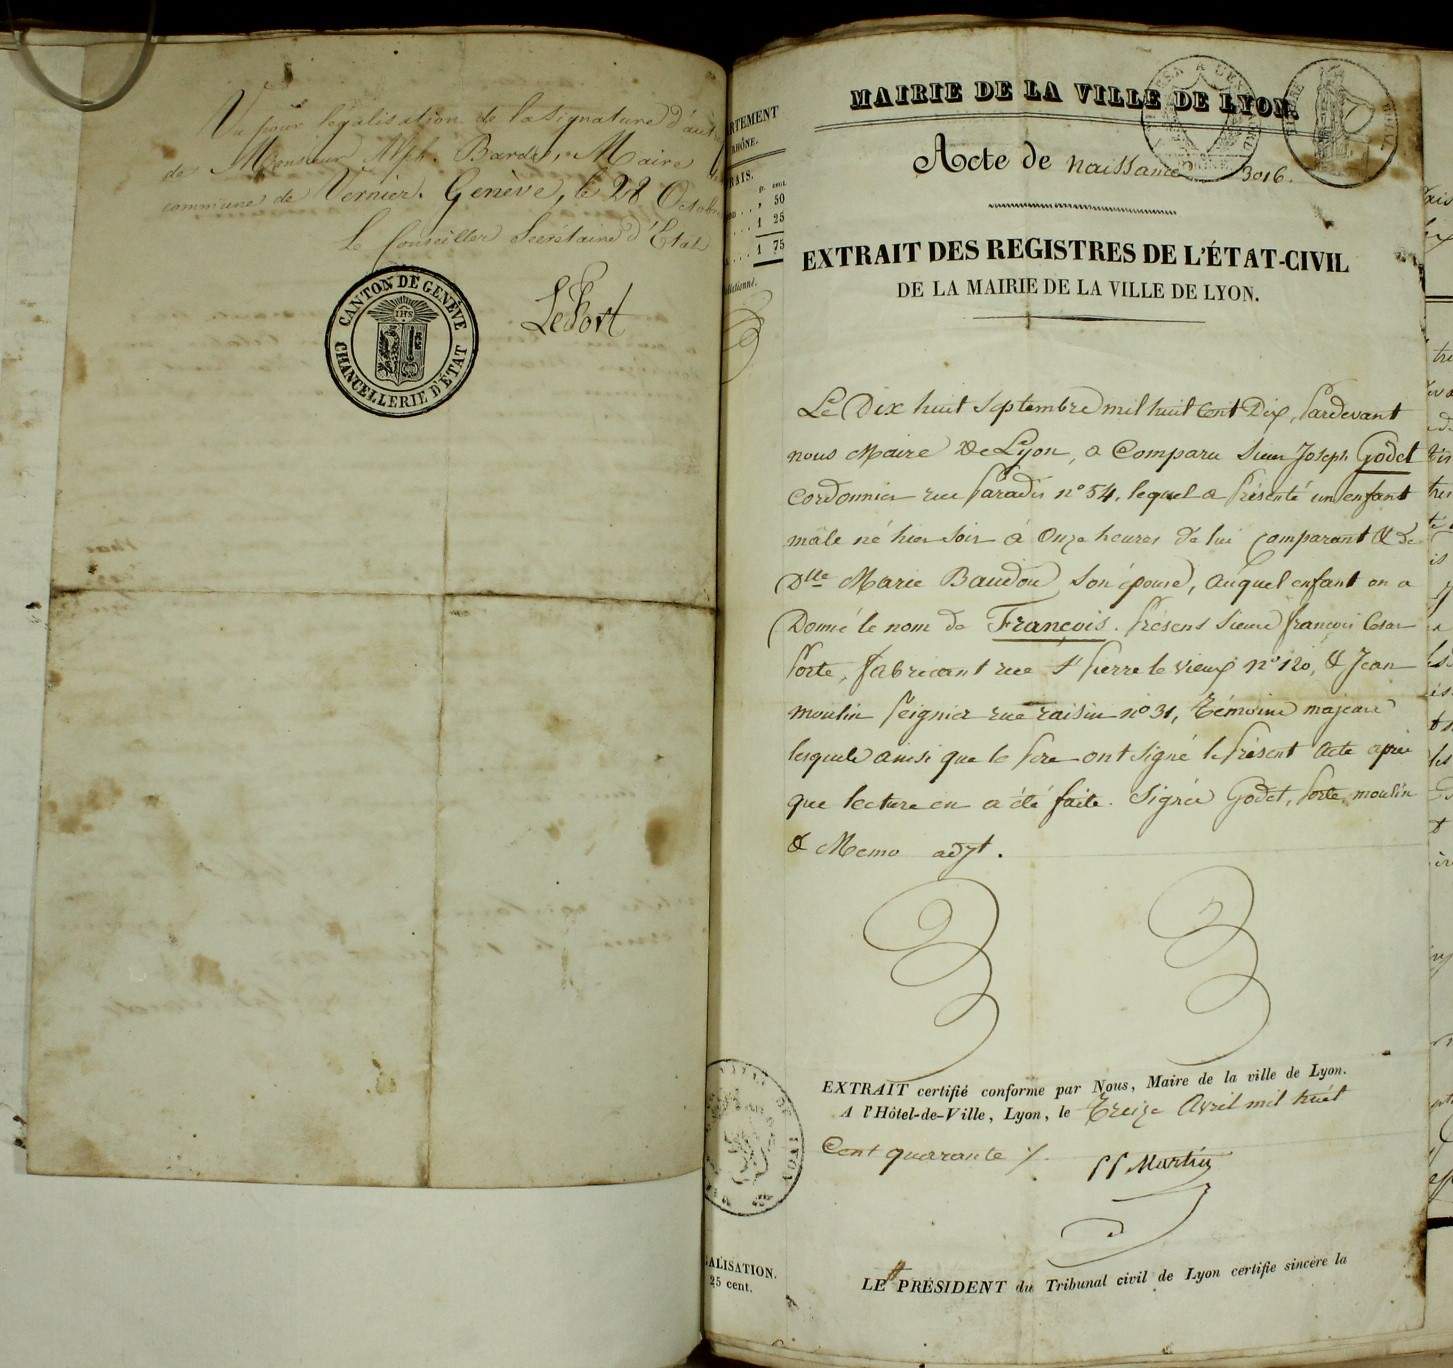 Vu pour légalisation de la signature d'autre
de Monsieur Alph. Bardet, Maire
commune de Vernier. Genève, le 28 Octobre
Le Conseiller Secrétaire d'Etat
CANTON DE GENÈVE
CHANCELLERIE D'ÉTAT
IHS
LeFort
RTEMENT
RHÔNE.
RAIS.
50
1 25
1 75
VILLE DE LYON
ALISATION.
25 cent.
MAIRIE DE LA VILLE DE LYON.
Acte de naissance 3016.
EXTRAIT DES REGISTRES DE L'ÉTAT-CIVIL
DE LA MAIRIE DE LA VILLE DE LYON.
Le Dix huit Septembre mil huit Cent Dix, Pardevant
nous Maire De Lyon, a Comparu Sieur Joseph Godet
Cordonnier rue Paradis n° 54, lequel a Présenté un enfant
mâle né hier soir à Onze heures de lui Comparant & de
Dlle Marie Baudou son épouse, auquel enfant on a
Donné le nom de François. Présens Sieurs françois Cesar
Porte, fabricant rue St Pierre le vieux n° 120, & Jean
moulin Peignier rue raisin n° 31, témoins majeurs
lesquels ainsi que le Pere ont signé le Présent Acte après
que lecture en a été faite. Signés Godet, Porte, moulin
& Memo adjt.
EXTRAIT certifié conforme par Nous, Maire de la ville de Lyon.
A l'Hôtel-de-Ville, Lyon, le Treize Avril mil huit
Cent quarante /.
Martin
LE PRÉSIDENT du Tribunal civil de Lyon certifie sincère la